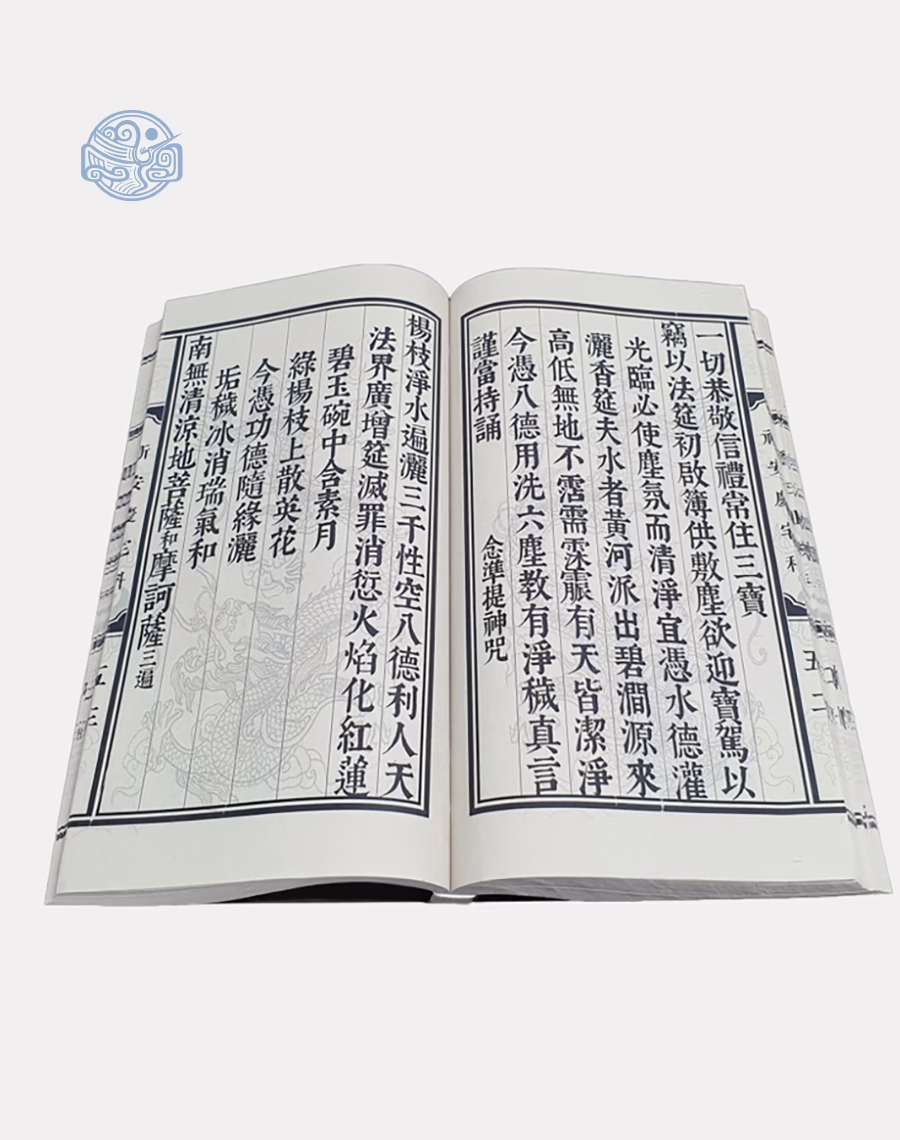 一切恭敬信禮常住三寶
竊以法筵初啟簿供敷塵欲迎寶駕以
光臨必使塵氛而清淨宜憑水德灌
灑香筵夫水者黃河派出碧澗源來
高低無地不霑需霂霢有天皆潔淨
今憑八德用洗六塵教有淨穢真言
謹當持誦 念準提神咒
楊枝淨水遍灑三千性空八德利人天
法界廣增筵滅罪消愆火焰化紅蓮
碧玉碗中含素月
綠楊枝上散英花
今憑功德隨緣灑
垢穢冰消瑞氣和
南無清涼地菩薩和摩訶薩三遍